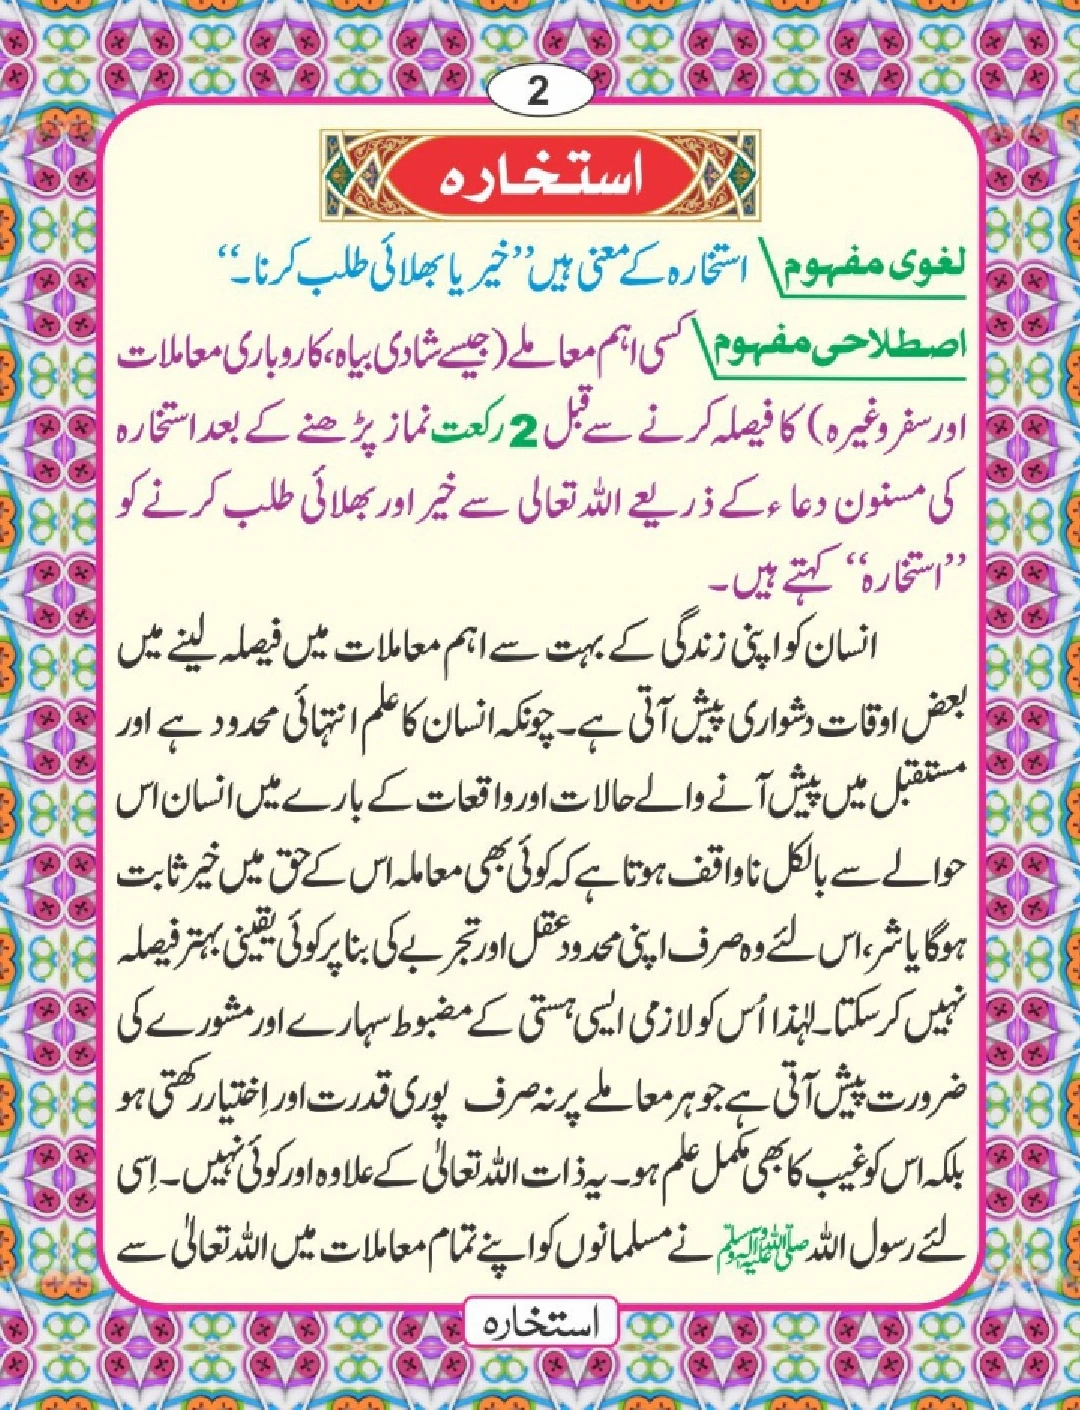 2
استخارہ
لغوی مفہوم \ استخارہ کے معنی ہیں ”خیر یا بھلائی طلب کرنا۔“
اصطلاحی مفہوم \ کسی اہم معاملے (جیسے شادی بیاہ، کاروباری معاملات
اور سفر وغیرہ) کا فیصلہ کرنے سے قبل 2 رکعت نماز پڑھنے کے بعد استخارہ
کی مسنون دعاء کے ذریعے اللہ تعالی سے خیر اور بھلائی طلب کرنے کو
”استخارہ“ کہتے ہیں۔
انسان کو اپنی زندگی کے بہت سے اہم معاملات میں فیصلہ لینے میں
بعض اوقات دشواری پیش آتی ہے۔ چونکہ انسان کا علم انتہائی محدود ہے اور
مستقبل میں پیش آنے والے حالات اور واقعات کے بارے میں انسان اس
حوالے سے بالکل ناواقف ہوتا ہے کہ کوئی بھی معاملہ اس کے حق میں خیر ثابت
ہوگا یا شر، اس لئے وہ صرف اپنی محدود عقل اور تجربے کی بنا پر کوئی یقینی بہتر فیصلہ
نہیں کرسکتا۔ لہٰذا اُس کو لازمی ایسی ہستی کے مضبوط سہارے اور مشورے کی
ضرورت پیش آتی ہے جو ہر معاملے پر نہ صرف پوری قدرت اور اِختیار رکھتی ہو
بلکہ اس کو غیب کا بھی مکمل علم ہو۔ یہ ذات اللہ تعالیٰ کے علاوہ اور کوئی نہیں۔ اِسی
لئے رسول اللہ ﷺ نے مسلمانوں کو اپنے تمام معاملات میں اللہ تعالیٰ سے
استخارہ